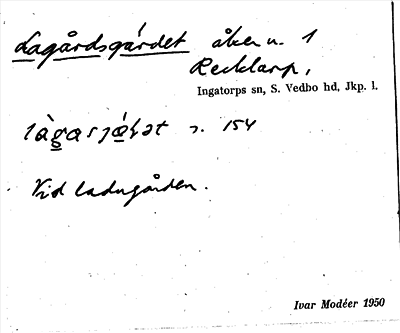 Lagårdsgärdet åker u. 1
Recklarp,
Ingatorps sn, S. Vedbo hd, Jkp. l.
s. 154
Vid ladugården.
Ivar Modéer 1950